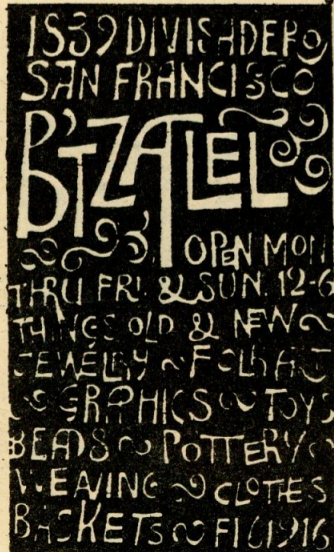 1539 DIVISADERO
SAN FRANCISCO
B'TZALEL
OPEN MON
THRU FRI & SUN 12-6
THINGS OLD & NEW
JEWELRY ~ FOLK ART
~ GRAPHICS ~ TOYS
BEADS ~ POTTERY ~
WEAVING ~ CLOTHES
BASKETS ~ FI 61916